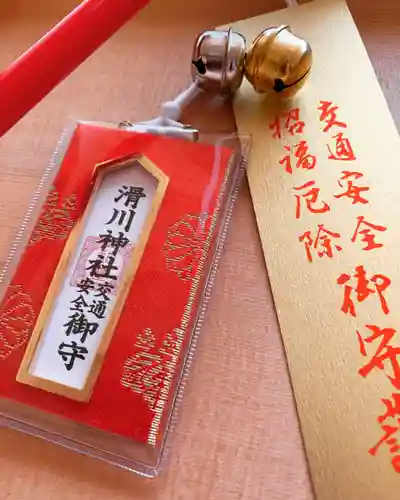 滑川神社
交通
安全
御守
交通安全御守
招福厄除